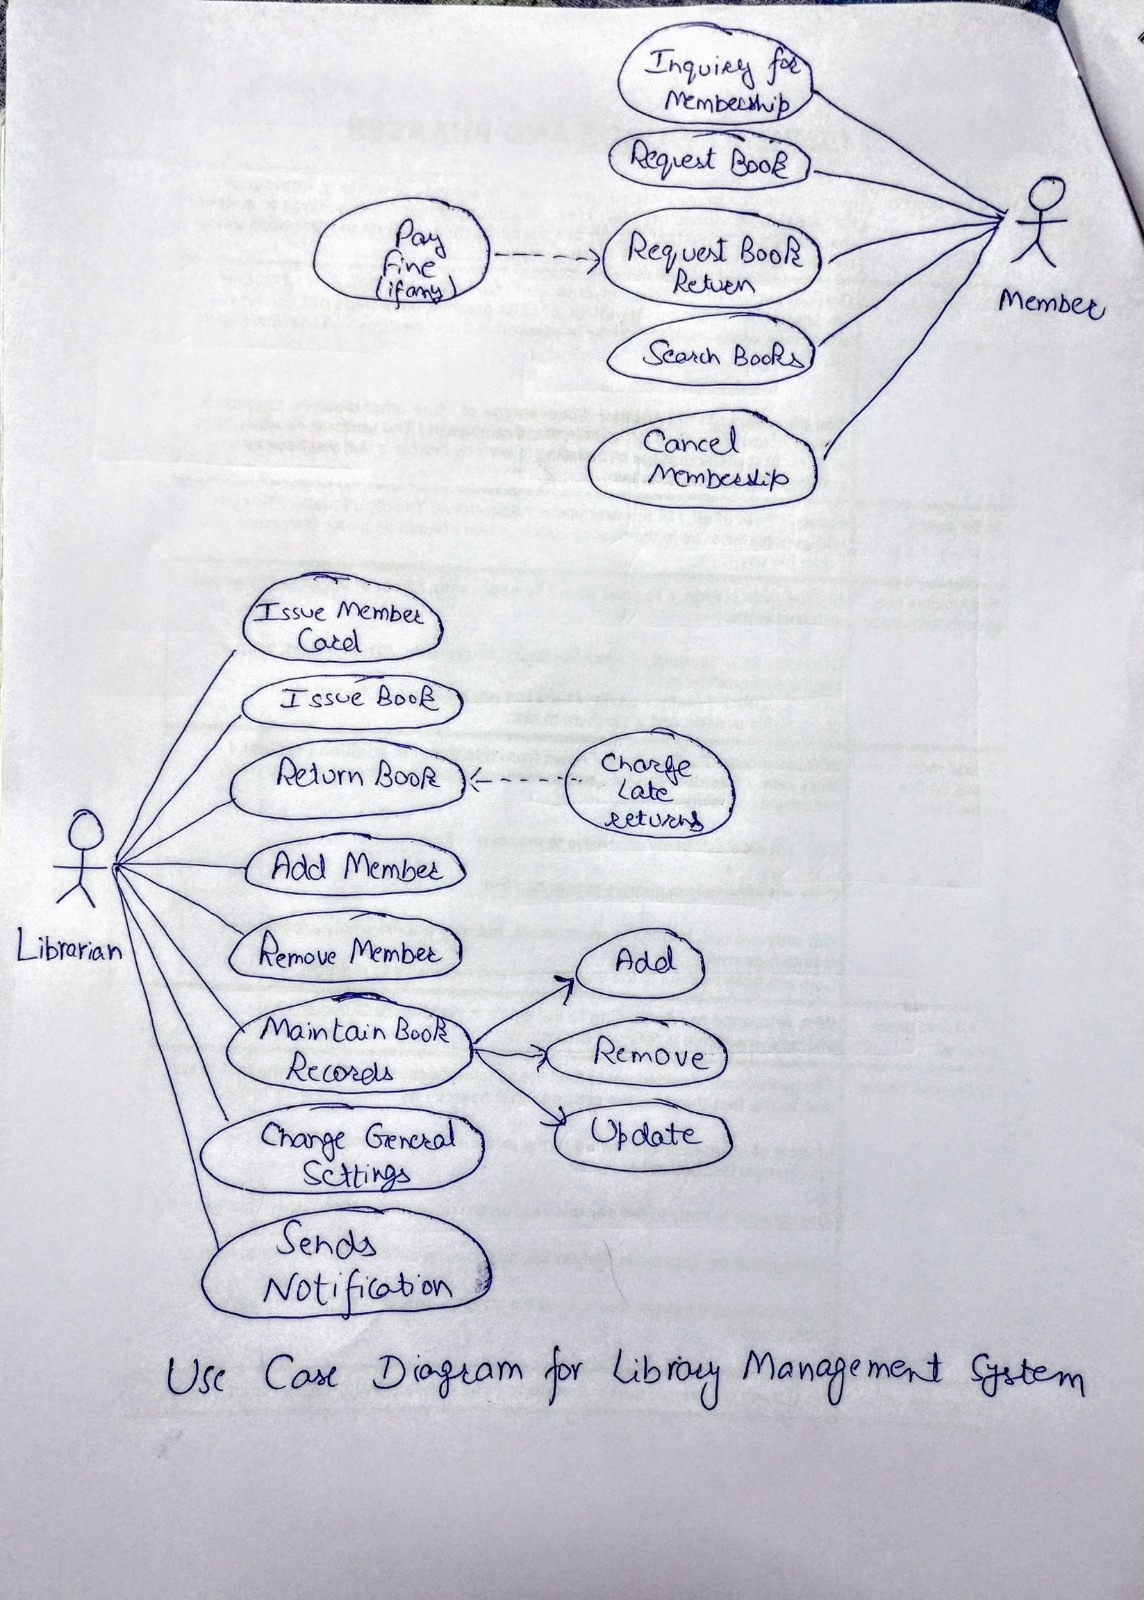 Inquiry for
Membership
Request Book
Pay
Fine
(if any)
Request Book
Return
Member
Search Books
Cancel
Membership
Issue Member
Card
Issue Book
Return Book
Charge
Late
returns
Add Member
Librarian
Remove Member
Add
Maintain Book
Records
Remove
Change General
Settings
Update
Sends
Notification
Use Case Diagram for Library Management System